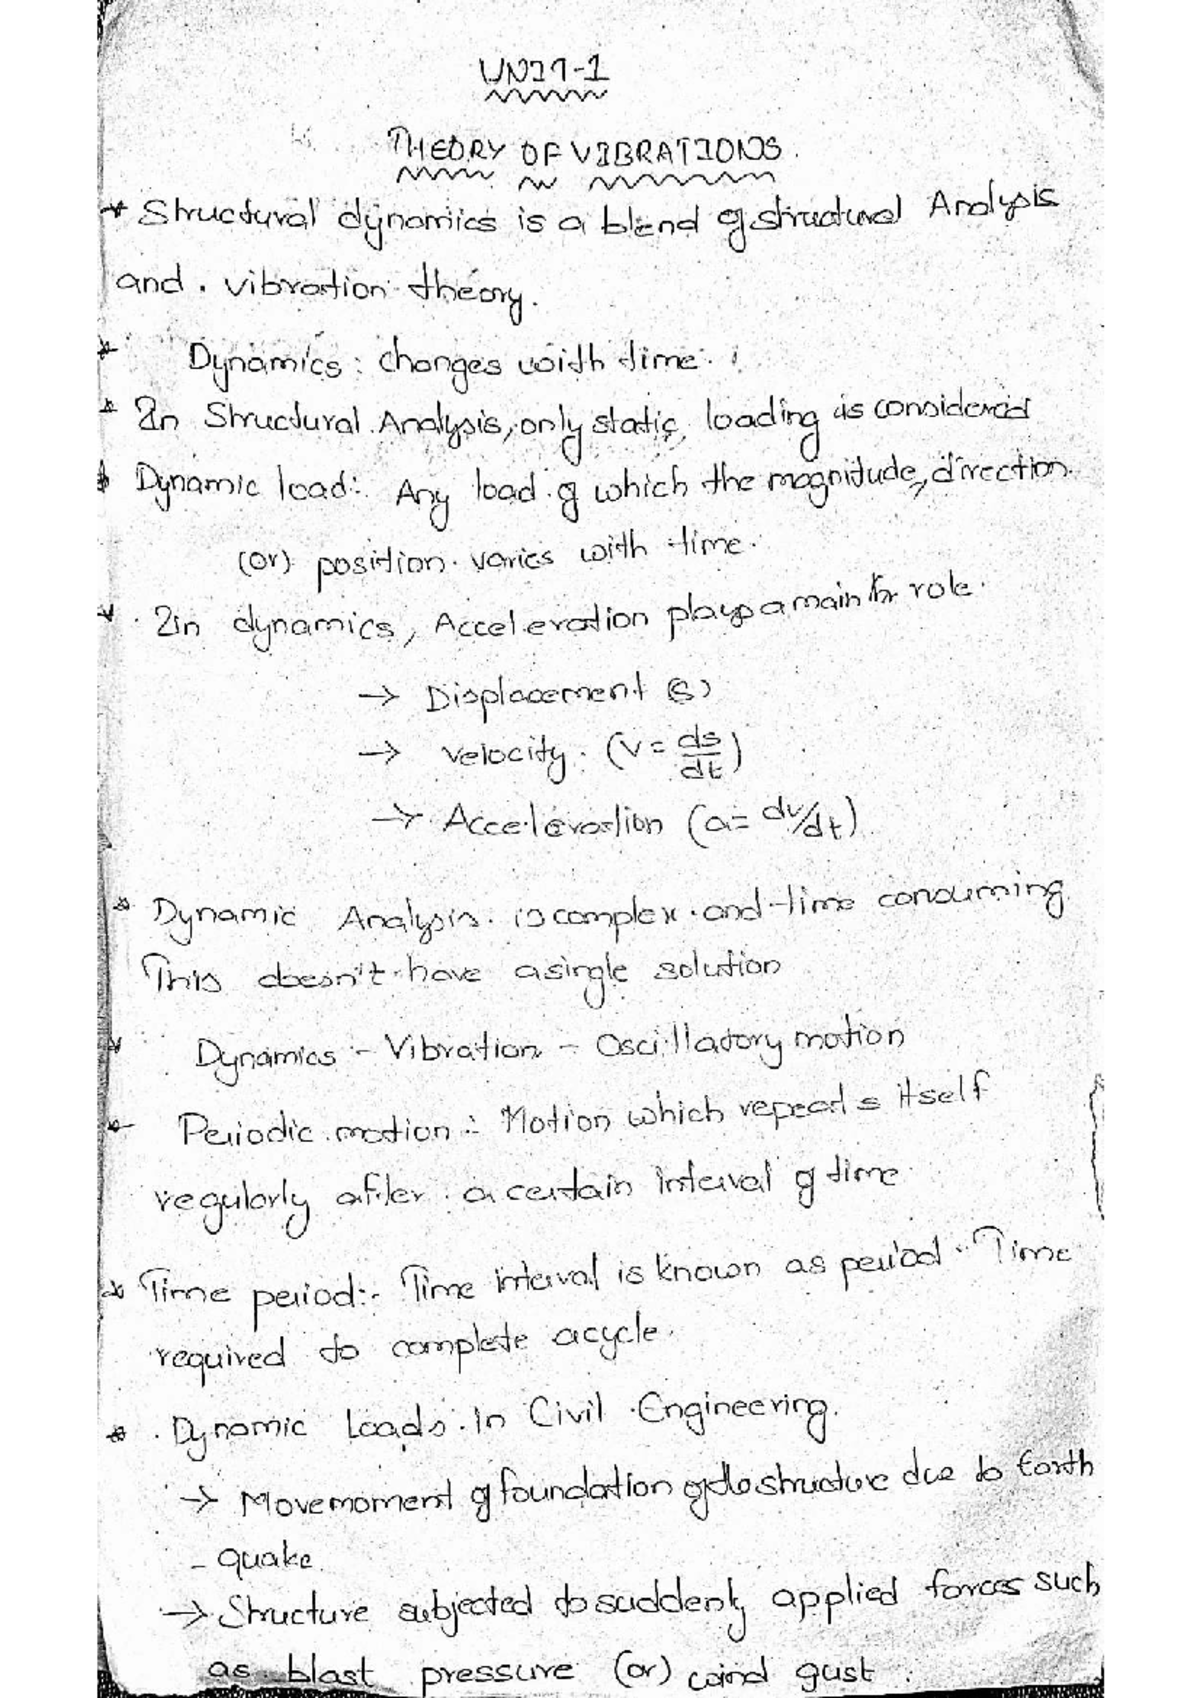 UNIT-1
THEORY OF VIBRATIONS.
* Structural dynamics is a blend of structural Analysis
and vibration theory.
* Dynamics: changes with time.
* In Structural Analysis, only static loading is considered
* Dynamic load:- Any load of which the magnitude, direction
(or) position varies with time.
* In dynamics, Acceleration plays a main role.
→ Displacement (s)
→ velocity (v = ds/dt)
→ Acceleration (a = dv/dt)
* Dynamic Analysis is complex and time consuming
This doesn't have a single solution
* Dynamics - Vibration - Oscillatory motion
* Periodic motion :- Motion which repeats itself
regularly after a certain interval of time
* Time period:- Time interval is known as period. Time
required to complete a cycle.
* Dynamic Loads in Civil Engineering.
→ Movemoment of foundation of the structure due to Earth
- quake
→ Structure subjected to suddenly applied forces such
as blast pressure (or) wind gust.